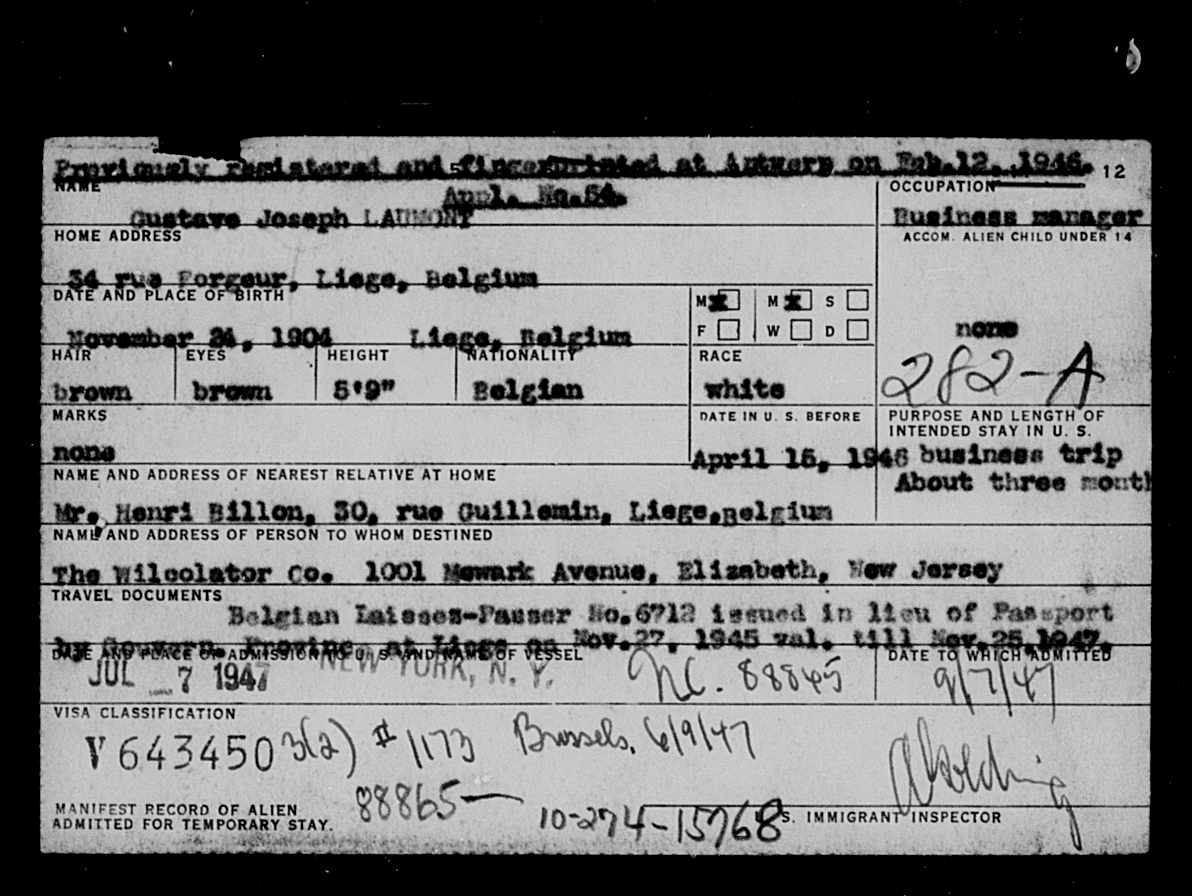 Previously registered and fingerprinted at Antwerp on Feb.12, 1946. 12
Appl. No.54.
NAME
OCCUPATION
Gustave Joseph LAUMONT
Business manager
HOME ADDRESS
ACCOM. ALIEN CHILD UNDER 14
34 rue Forgeur, Liege, Belgium
DATE AND PLACE OF BIRTH
M M S
none
F W D
November 24, 1904 Liege, Belgium
HAIR EYES HEIGHT NATIONALITY RACE
282-A
brown brown 5'9" Belgian white
MARKS
DATE IN U. S. BEFORE
PURPOSE AND LENGTH OF
INTENDED STAY IN U. S.
none
April 15, 1946 business trip
About three month
NAME AND ADDRESS OF NEAREST RELATIVE AT HOME
Mr. Henri Billon, 30, rue Guillemin, Liege,Belgium
NAME AND ADDRESS OF PERSON TO WHOM DESTINED
The Wilcolator Co. 1001 Newark Avenue, Elizabeth, New Jersey
TRAVEL DOCUMENTS
Belgian Laisses-Passer No.6712 issued in lieu of Passport
by Govern. at Liege on Nov.27, 1945 val. till Nov.25,1947.
DATE AND PLACE OF ADMISSION IN U. S. AND NAME OF VESSEL
DATE TO WHICH ADMITTED
JUL 7 1947 NEW YORK, N. Y. NC. 88845 9/7/47
VISA CLASSIFICATION
V643450 3(2) # 1173 Brussels, 6/9/47
88865
MANIFEST RECORD OF ALIEN
ADMITTED FOR TEMPORARY STAY.
10-274-15768
S. IMMIGRANT INSPECTOR